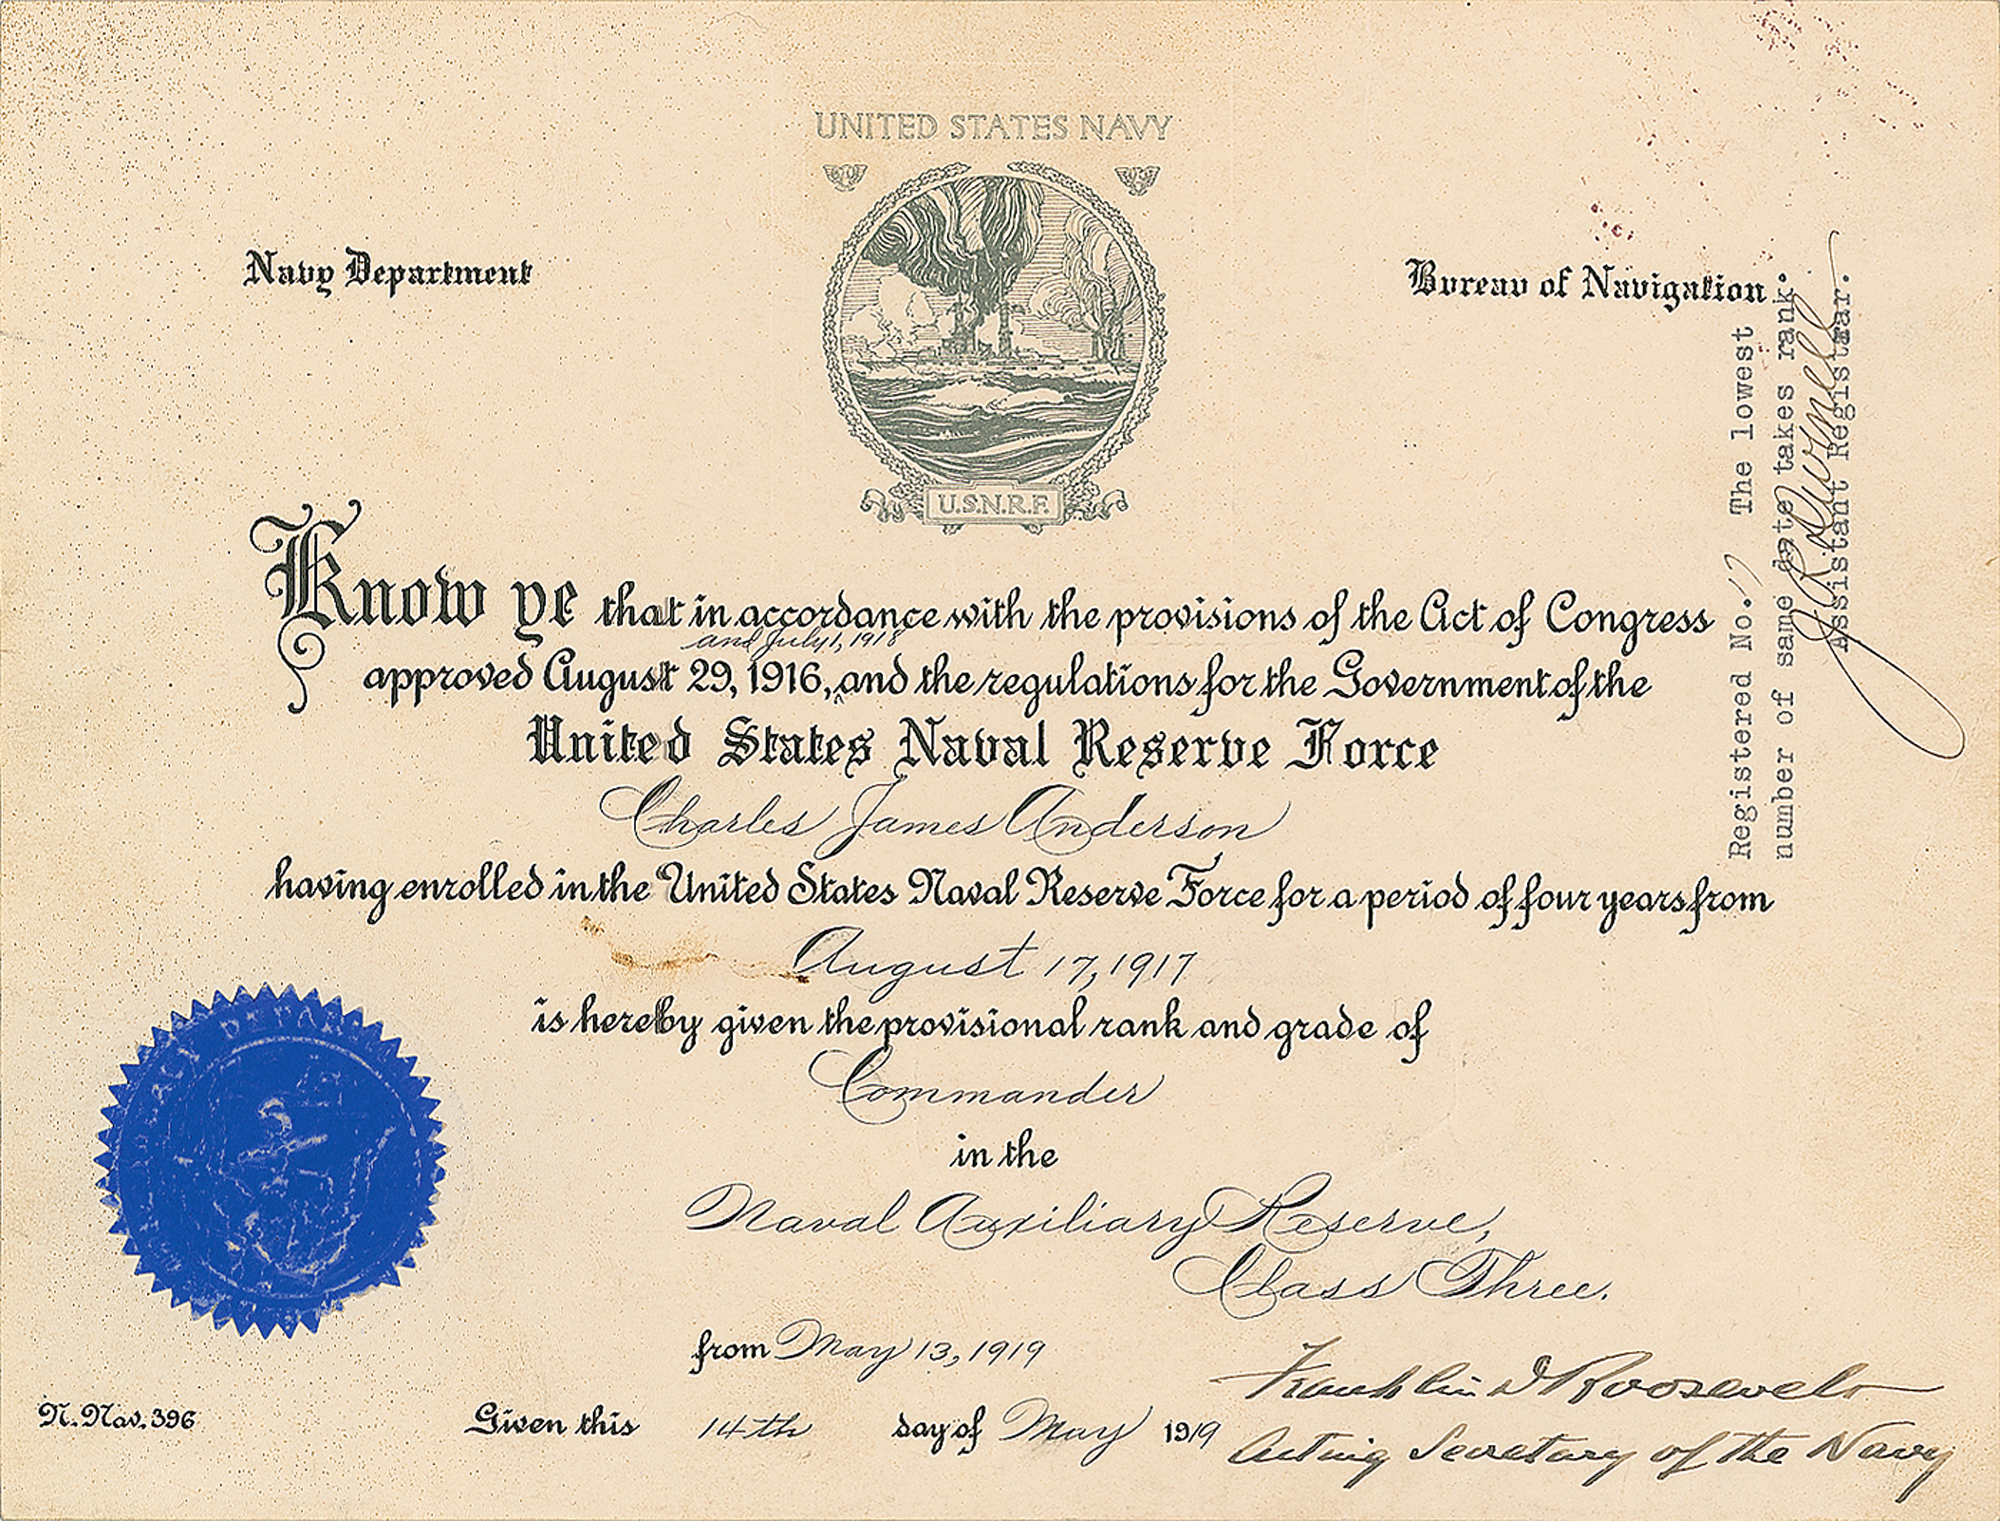 UNITED STATES NAVY
Navy Department
Bureau of Navigation
U.S.N.R.F.
Know ye that in accordance with the provisions of the Act of Congress
and July 1, 1918
approved August 29, 1916, and the regulations for the Government of the
United States Naval Reserve Force
Charles James Anderson
having enrolled in the United States Naval Reserve Force for a period of four years from
August 17, 1917
is hereby given the provisional rank and grade of
Commander
in the
Naval Auxiliary Reserve,
Class Three.
from May 13, 1919
Given this 14th day of May 1919
Franklin D Roosevelt
Acting Secretary of the Navy
N. Nav. 396
Registered No. The lowest
number of same date takes rank.
Assistant Registrar.